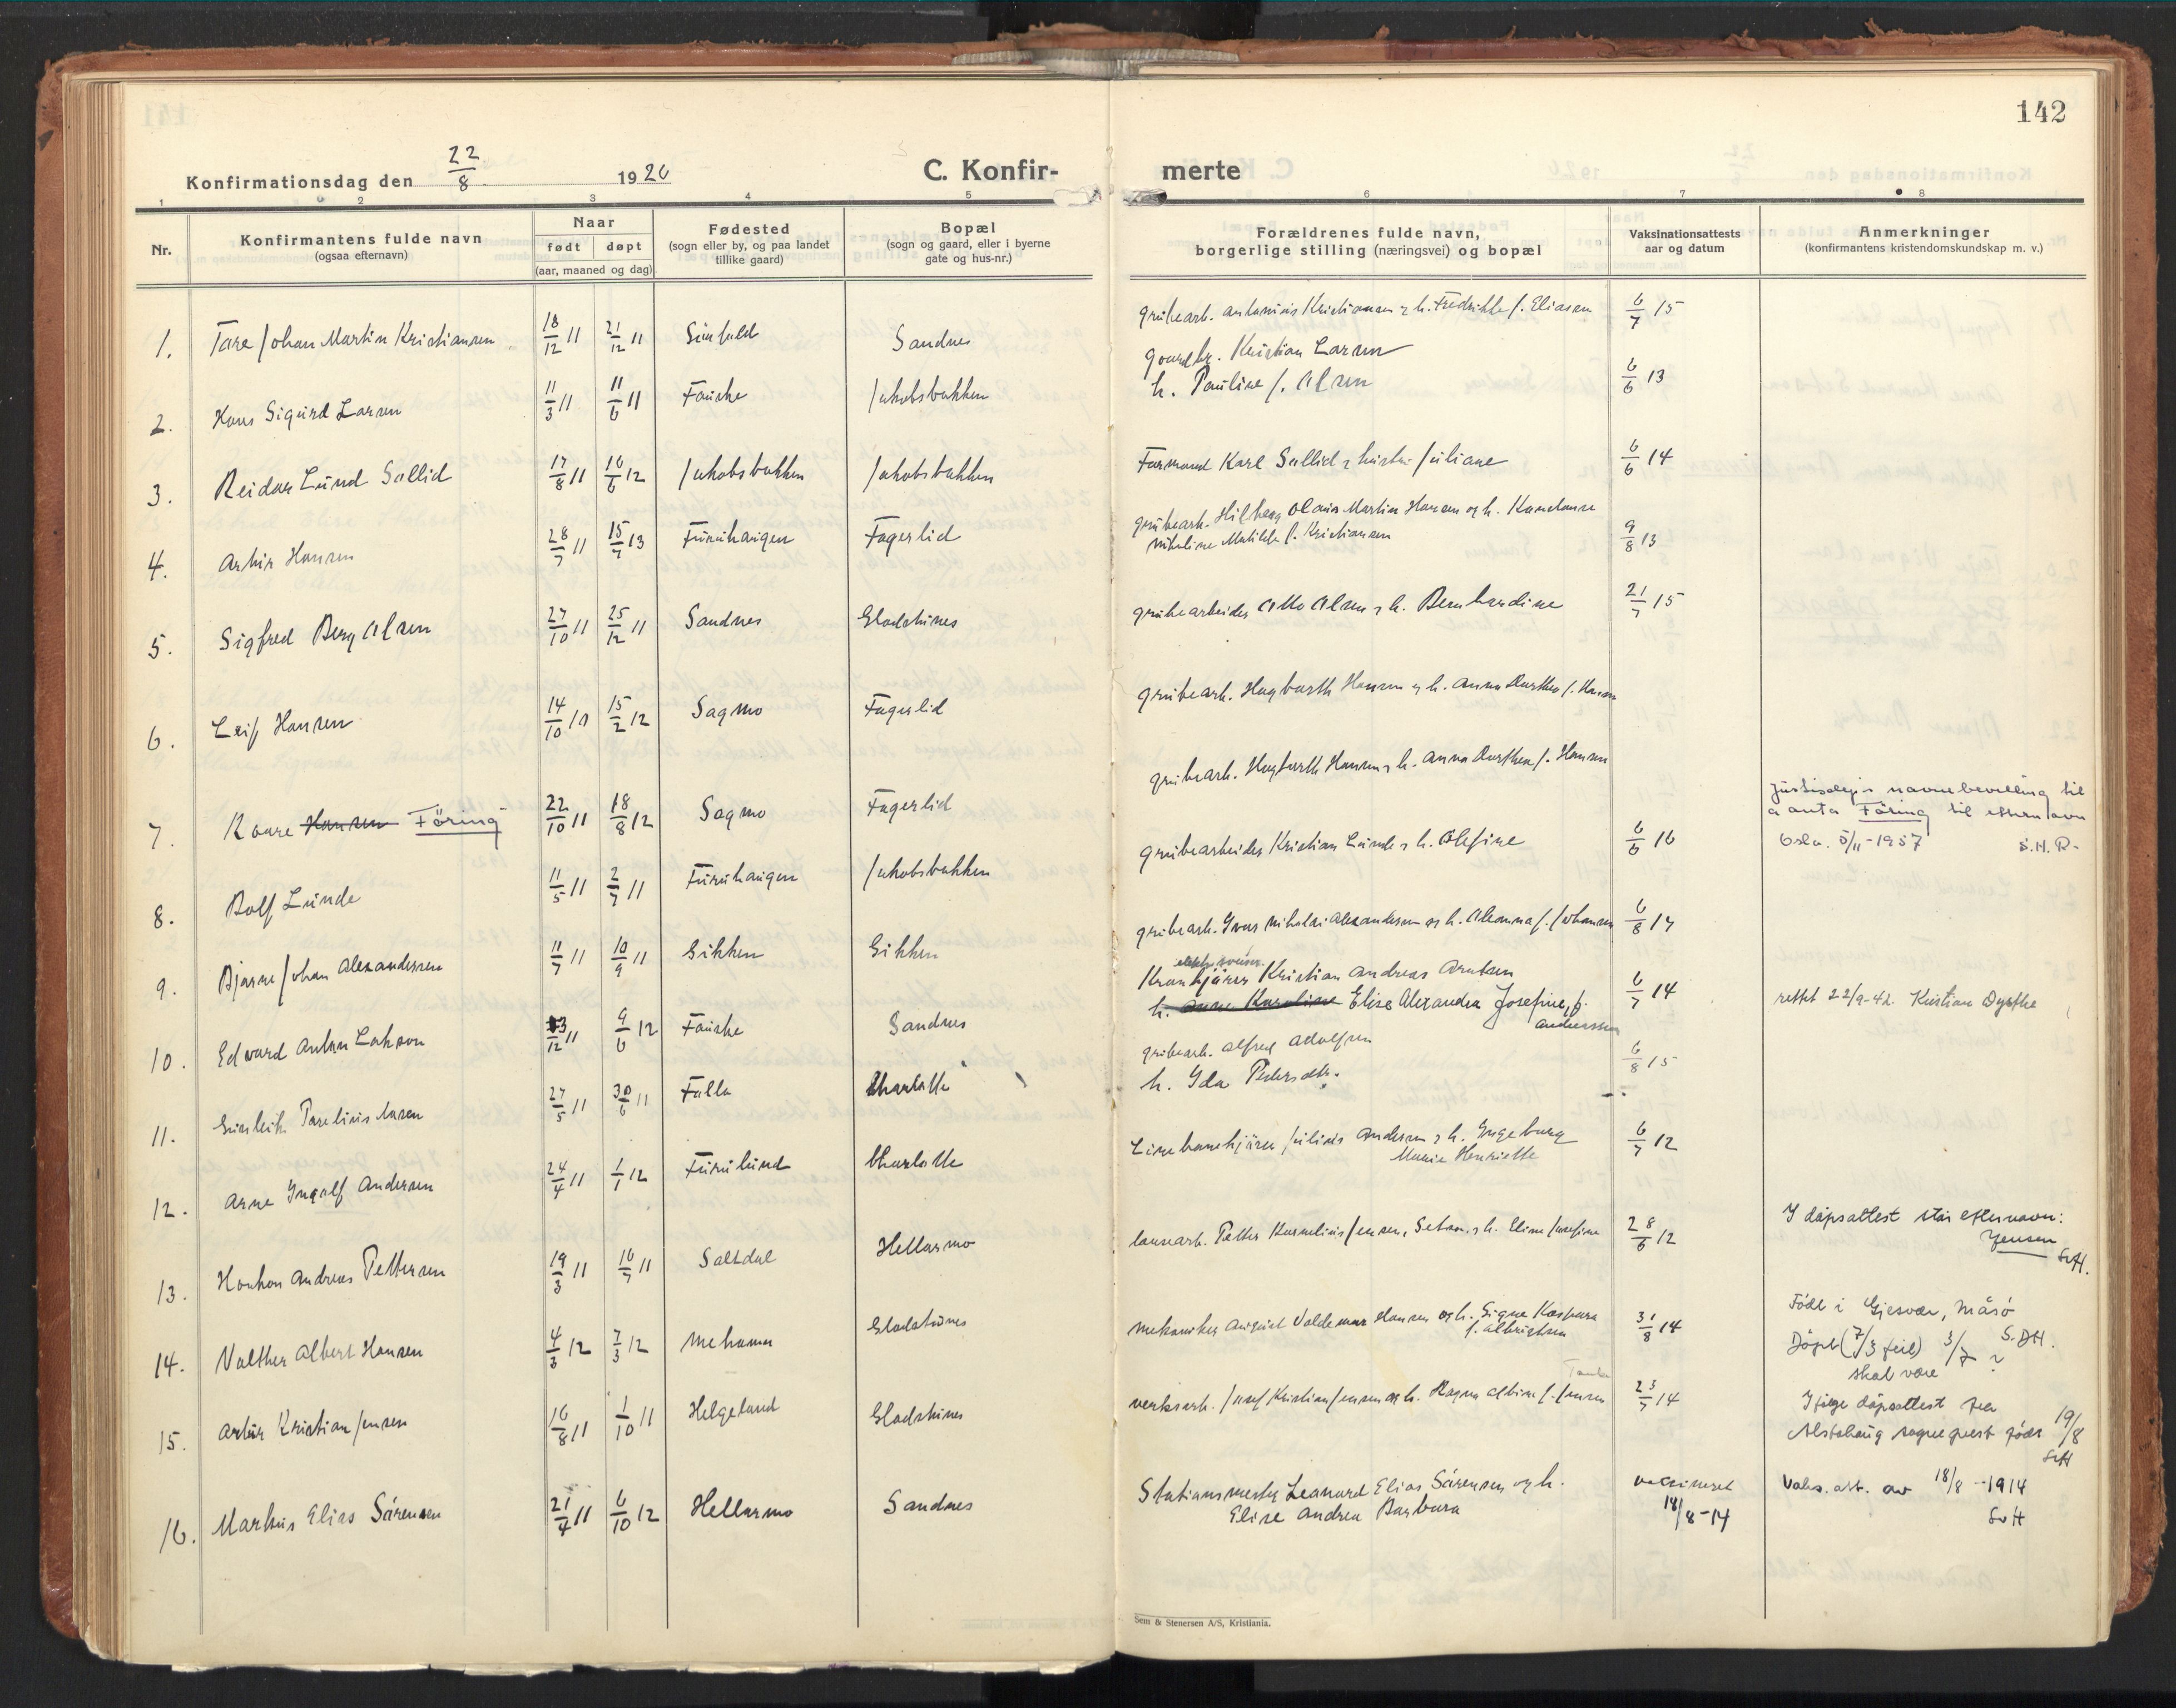 142
Konfirmationsdag den 22/8 1926
C. Konfirmerte
1 2 3 4 5 6 7 8
Nr.
Konfirmantens fulde navn
(ogsaa efternavn)
Naar
født døpt
(aar, maaned og dag)
Fødested
(sogn eller by, og paa landet
tillike gaard)
Bopæl
(sogn og gaard, eller i byerne
gate og hus-nr.)
Forældrenes fulde navn,
borgerlige stilling (næringsvei) og bopæl
Vaksinationsattests
aar og datum
Anmerkninger
(konfirmantens kristendomskundskap m. v.)
1. Tore Johan Martin Kristiansen 18/12 11 21/12 11 Sandnes
grubearb. Antonius Kristiansen og h. Fredrikke f. Eliasen 6/7 15
2. Hans Sigurd Larsen 11/3 11 11/6 11 Fauske Jakobsbakken
gaardbr. Kristian Larsen
h. Pauline f. Olsen 6/6 13
3. Reidar Lund Sollid 17/8 11 16/6 12 Jakobsbakken Jakobsbakken
Formand Karl Sollid og hustru Juliane 6/6 14
4. Artur Hansen 28/7 11 15/7 13 Furuhaugen Fagerlid
grubearb. Hilberg Olaus Martin Hansen og h. Konstanse
Nikoline Matilde f. Kristiansen 9/8 13
5. Sigfred Berg Olsen 27/10 11 25/12 11 Sandnes Gladstunes
grubearbeider Otto Olsen og h. Bernhardine 21/7 15
6. Leif Hansen 14/10 10 15/2 12 Sagmo Fagerlid
grubearb. Hagbarth Hansen og h. Anna Dorthea f. Hansen
7. Kaare Hansen Föring 22/10 11 18/8 12 Sagmo Fagerlid
grubearb. Hagbarth Hansen og h. Anna Dorthea f. Hansen
Justisdep.s navnebevilling til
å anta Föring til etternavn
Oslo. 5/11-1957 S.H.R-
8. Rolf Lunde 11/5 11 2/7 11 Furuhaugen Jakobsbakken
grubearbeider Kristian Lunde og h. Olefine 6/6 16
9. Bjarne Johan Alexandersen 11/7 11 10/9 11 Gikken Gikken
grubearb. Ivar Nikolai Alexandersen og h. f. Johansen 6/8 17
10. Edvard Anton 13/12 11 9/6 12 Fauske Sandnes
Krankjører Kristian Andreas Arntsen
h. Anne Karoline Elise Alexandra Josefine, f.
Andreassen 6/7 14
rettet 22/9-42. Kristian Dyrthe
11. 27/5 11 30/6 11 Fulla Charlotte
grubearb. Alfred Adolfsen
h. Ida Pedersdtr. 6/8 15
12. Arne Ingolf Andersen 24/4 11 1/1 12 Furulund Charlotte
Linebanekjører Julius Andersen og h. Ingeborg
Marie Henriette 6/7 12
13. Haakon Andreas Pettersen 19/3 11 16/7 11 Saltdal Hellarmo
løsearb. Petter Kornelius Jensen, Setsaa, og h. Elise Josefine 28/6 12
I dåpsattest står efternavn:
Jensen
SvH.
14. Valther Albert Hansen 4/3 12 7/3 12 Mehamn Gladstunes
mekaniker August Valdemar Hansen og h. Signe Kaspara
f. Albrigtsen 31/8 14
Född i Gjesvær, Måsö
Döpt (7/3 feil) 3/7 ? S.DH.
skal være
15. Artur Kristian Jensen 16/8 11 1/10 11 Helgeland Gladstunes
verksarb. Josef Kristian Jensen og h. Ragna Albine f. Jensen 23/7 14
Ifölge dåpsattest fra
Alstahaug sogneprest född 19/8
SvH
16. Markus Elias Sörensen 21/4 11 6/10 12 Hellarmo Sandnes
Stationsmester Leonard Elias Sörensen og h.
Elise Andrea Barbara vaksineret
18/8-14
Vaks. att. av 18/8 -1914
SvH
Sem & Stenersen A/S, Kristiania.